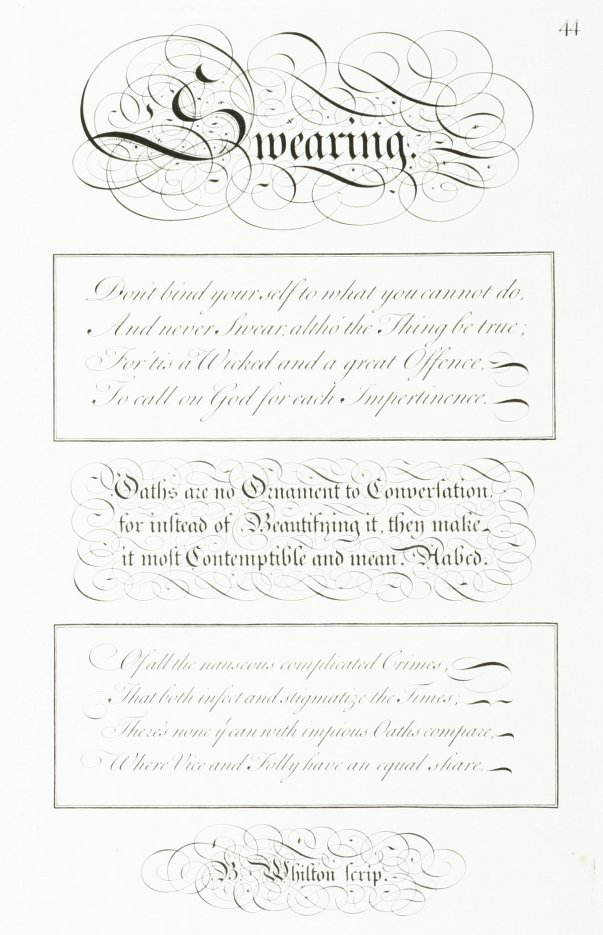 44
Swearing.
Don't bind your self to what you cannot do,
And never Swear, altho' the Thing be true;
For 'tis a Wicked and a great Offence,
To call on God for each Impertinence.
Oaths are no Ornament to Conversation,
for instead of Beautifying it, they make
it most Contemptible and mean. Nabcd.
Of all the nauseous complicated Crimes,
That both infect and stigmatize the Times;
There's none yͭ can with impious Oaths compare,
Where Vice and Folly have an equal share.
B. Whilton scrip.